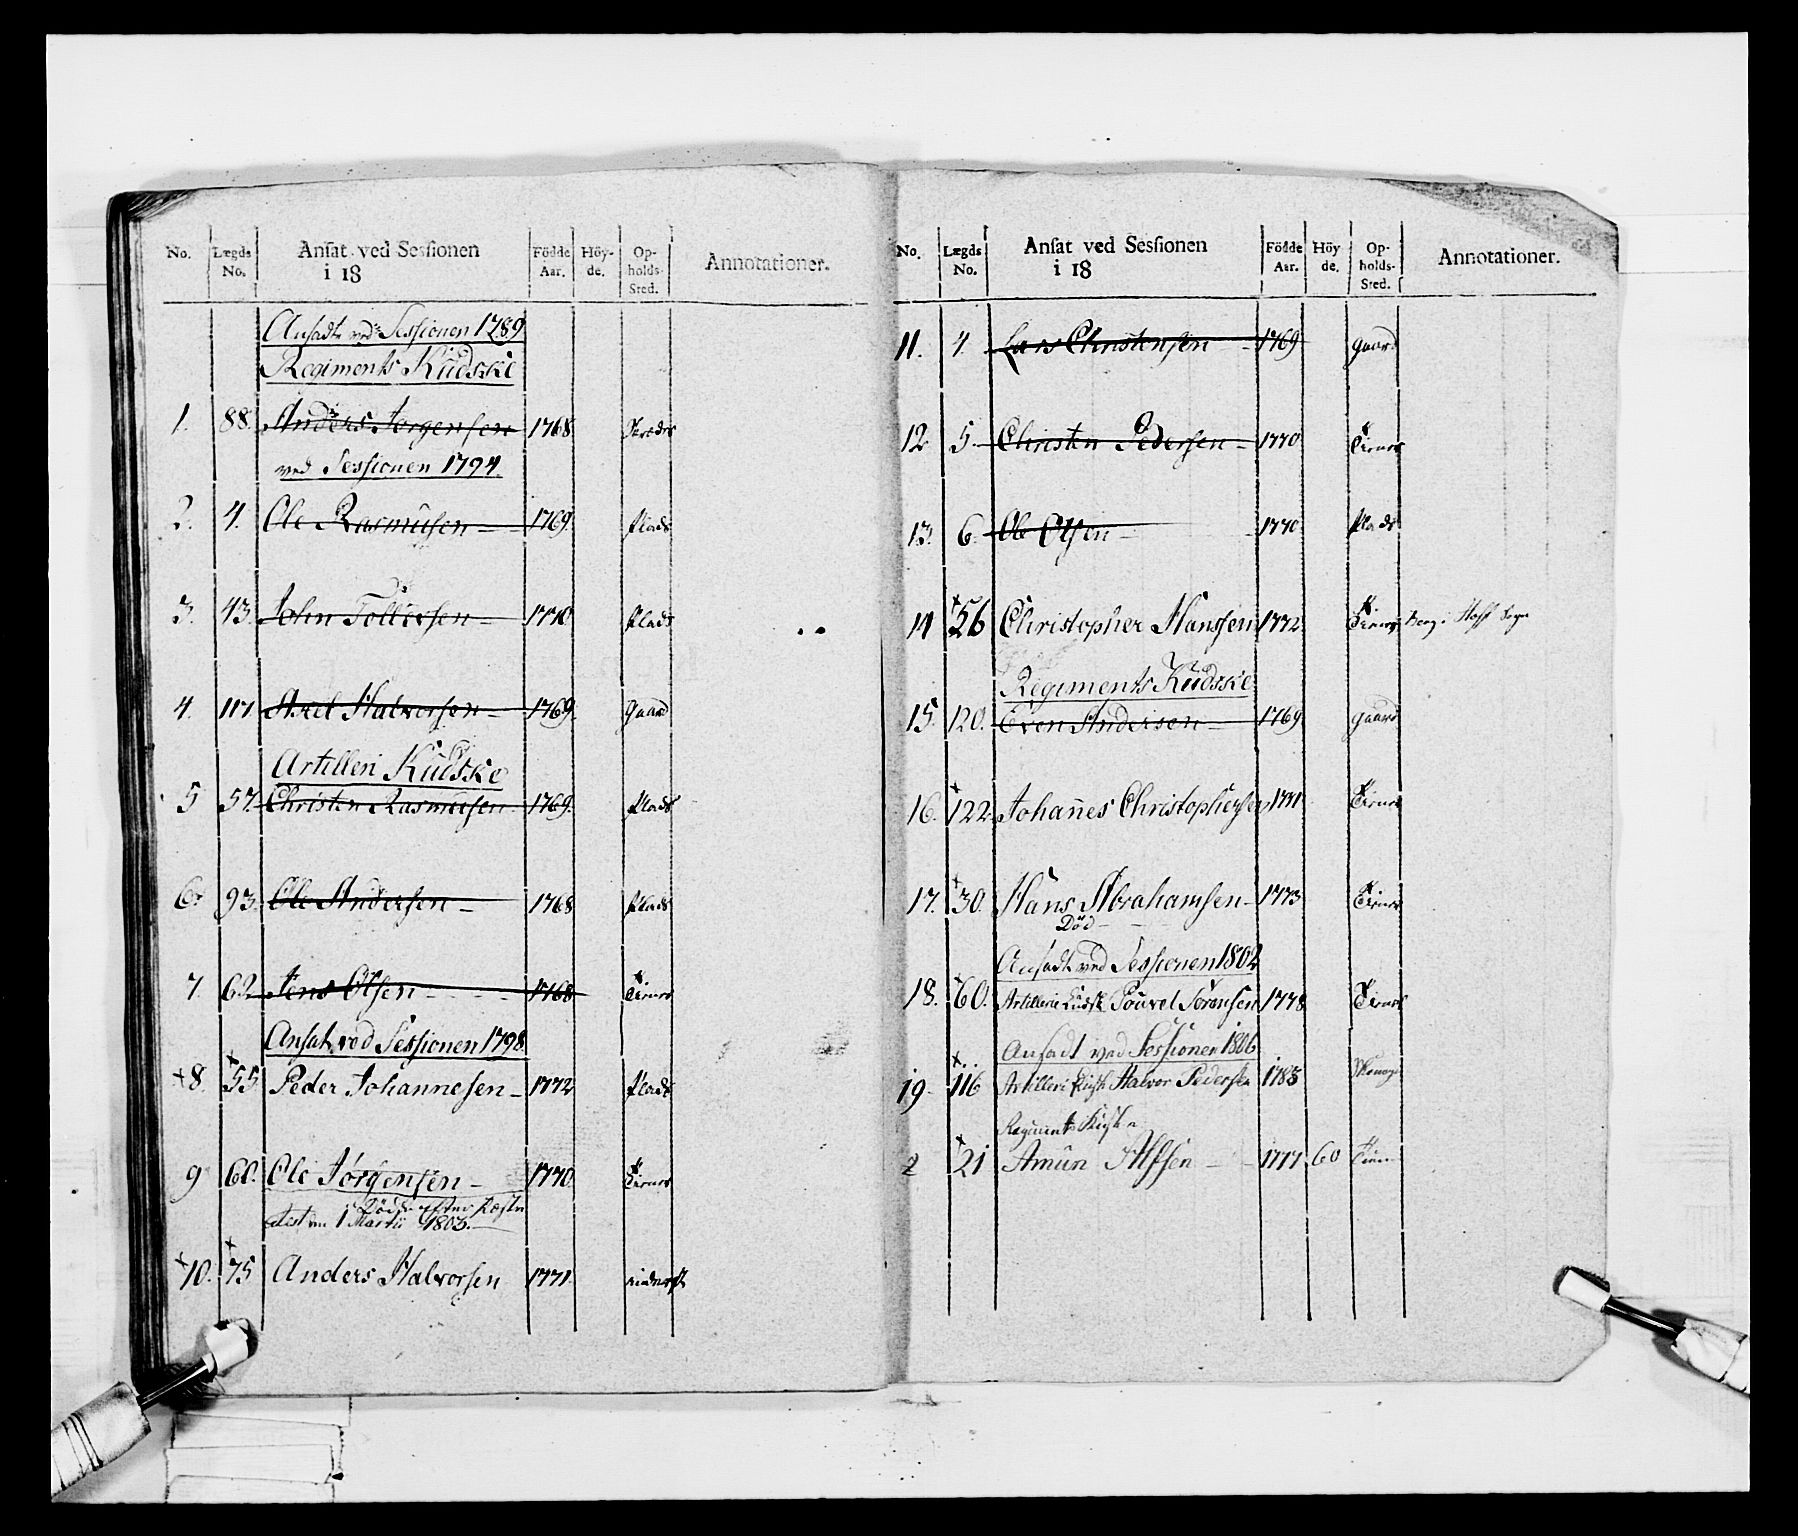 No. Lægds No. Ansat ved Sessionen i 18 Födde Aar. Höy-de. Op-holds-Sted. Annotationer.
Ansadt ved Sessionen 1789
Regiments Kudske
1. 88. Anders Jørgensen 1768
ved Sessionen 1794.
2. 4. Ole Rasmusen 1769. Plads
3. 43. John Tollersen 1770 Plads
4. 117. Axel Halvorsen 1769. gaard
Artilleri Kudske
5 57. Christen Rasmusen 1769. Plads
6. 93. Ole Andersen 1768 Plads
7. 62 Jens Olsen 1768 Tienes
Ansat ved Sessionen 1798.
8. 55. Peder Johannesen 1772 Plads
9 60. Ole Jørgensen 1770 Tienes
Døde efter
1 Martii 1803.
10. 75 Anders Halvorsen 1771.
No. Lægds No. Ansat ved Sessionen i 18 Födde Aar. Höy-de. Op-holds-Sted. Annotationer.
11. 4. Lars Christensen 1769 gaard
12 5. Christen Pedersen 1770 Tienes
13. 6. Ole Olsen 1770 Plads
14 56 Christopher Hanssen 1772 Tienes
Regiments Kudske
15. 120. Even Andersen 1769 gaard
16. 122. Johannes Christophersen 1771 Tienes
17. 30. Hans Abrahamsen 1773 Tienes
Død
Ansadt ved Sessionen 1802
18. 60. Artillerie Kudsk Pouvel Sørensen 1778 Tienes
Ansadt ved Sessionen 1806
19 116 Artilleri Kusk Halvor Pedersen 1783
Regiments Kusk
2 21 Amun Alfsen 1777 60